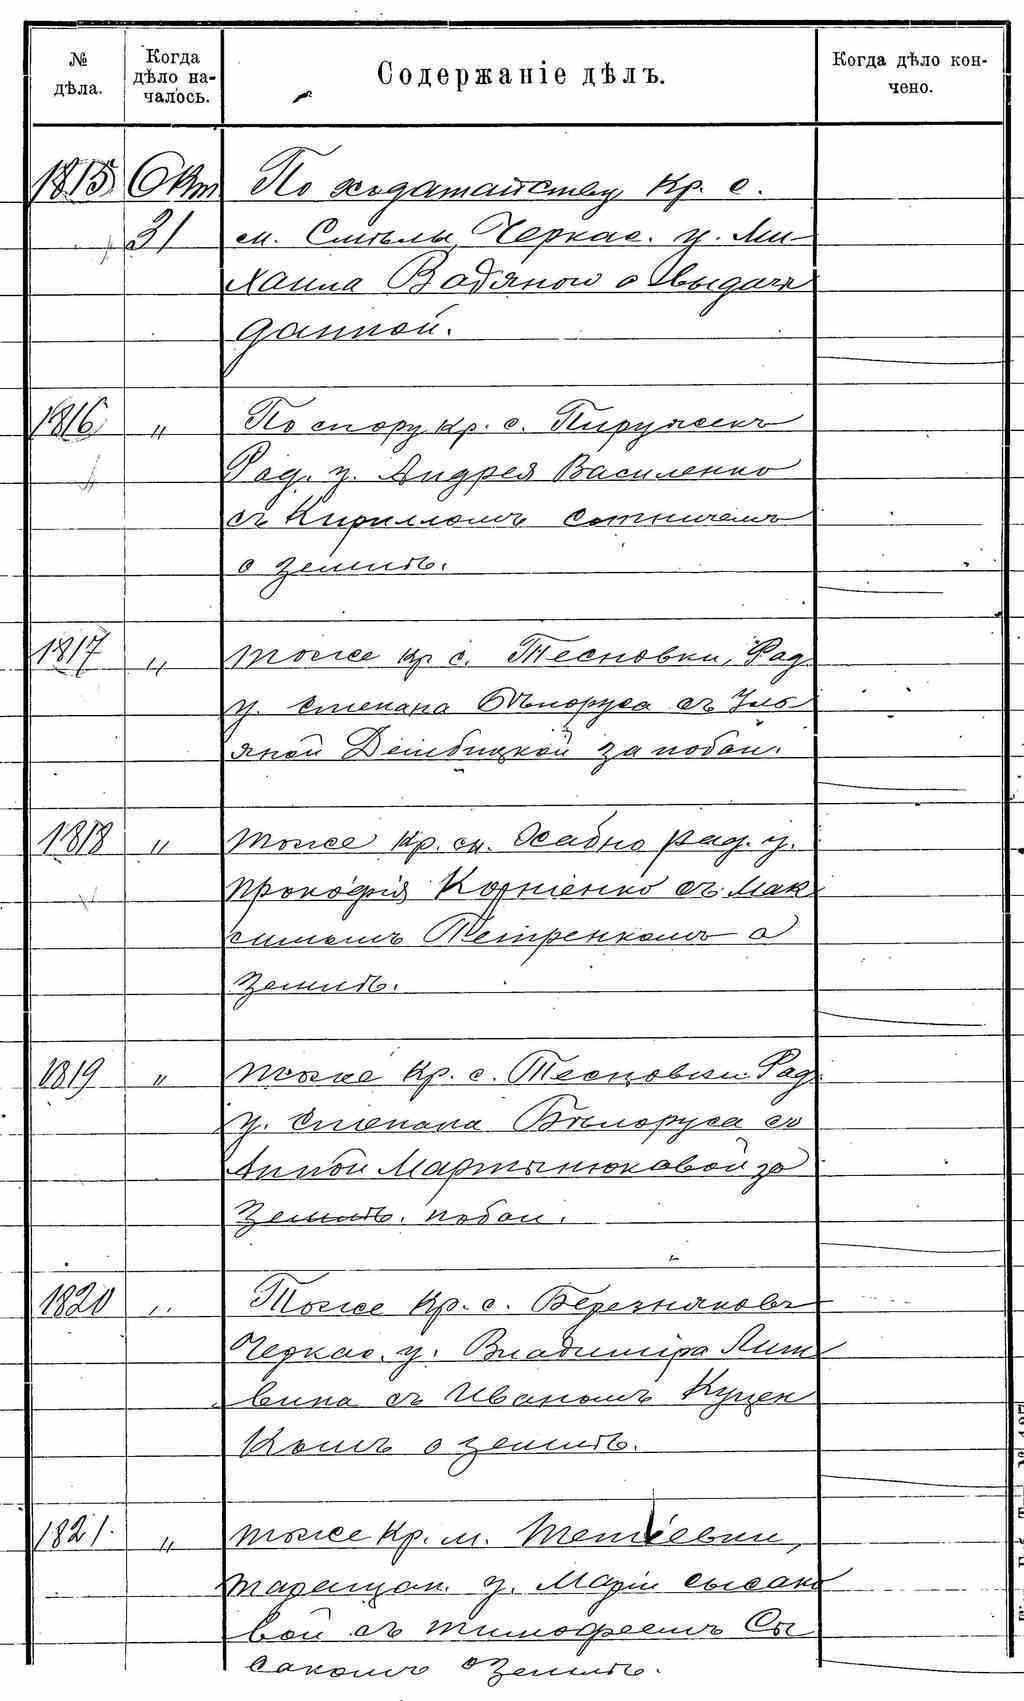 № дѣла.
Когда дѣло началось.
Содержаніе дѣлъ.
Когда дѣло кончено.
1815 Окт. По ходатайству кр. с.
31 м. Смѣлы, Черкас. у. Ми-
хаила Водяного о выдачѣ
данной.
1816 " По спору кр. с. Пиружекъ
Рад. у. Андрея Василенко
съ Кирилломъ Сотничемъ
о землѣ.
1817 " тоже кр. с. Тесновки, Рад.
у. Степана Бѣлоруса съ Уль
яной Дембицкой за побои.
1818 " тоже кр. сл. Осабно рад. у.
Прокофія Корніенко съ Мак
симомъ Петренкомъ о
землѣ.
1819 " тоже кр. с. Тесновки Рад.
у. Степана Бѣлоруса съ
Анной Мартынюковой за
землѣ. побои.
1820 " Тоже кр. с. Березняковъ
Черкас. у. Владиміра Лит
вина съ Иваномъ Куцен
комъ о землѣ.
1821. " тоже кр. м. Тетіевки,
таращан. у. Маріи Сысако
вой съ Тимофеемъ Сы
сакомъ о землѣ.